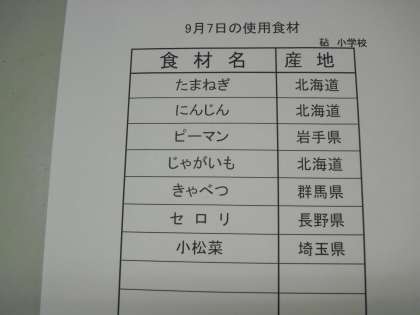 9月7日の使用食材
砧 小学校
食材名 産地
たまねぎ 北海道
にんじん 北海道
ピーマン 岩手県
じゃがいも 北海道
きゃべつ 群馬県
セロリ 長野県
小松菜 埼玉県